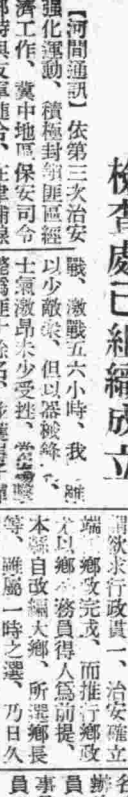 檢查處已組織成立
【河間通訊】依第三次治安
強化運動、積極封鎖匪區經
濟工作、冀中地區保安司令
部特與友軍連合、在津浦線
戰、激戰五六小時、我雖
以少敵衆、但以器械鋒、
士氣激昂未少受挫、當擊
斃匪十餘名、
謂欲求行政貫一、治安確立
端鄉政完成、而推行鄉政
尤以鄉務員得人爲前提、
本縣自改編大鄉、所選鄉長
等、雖屬一時之選、乃日久